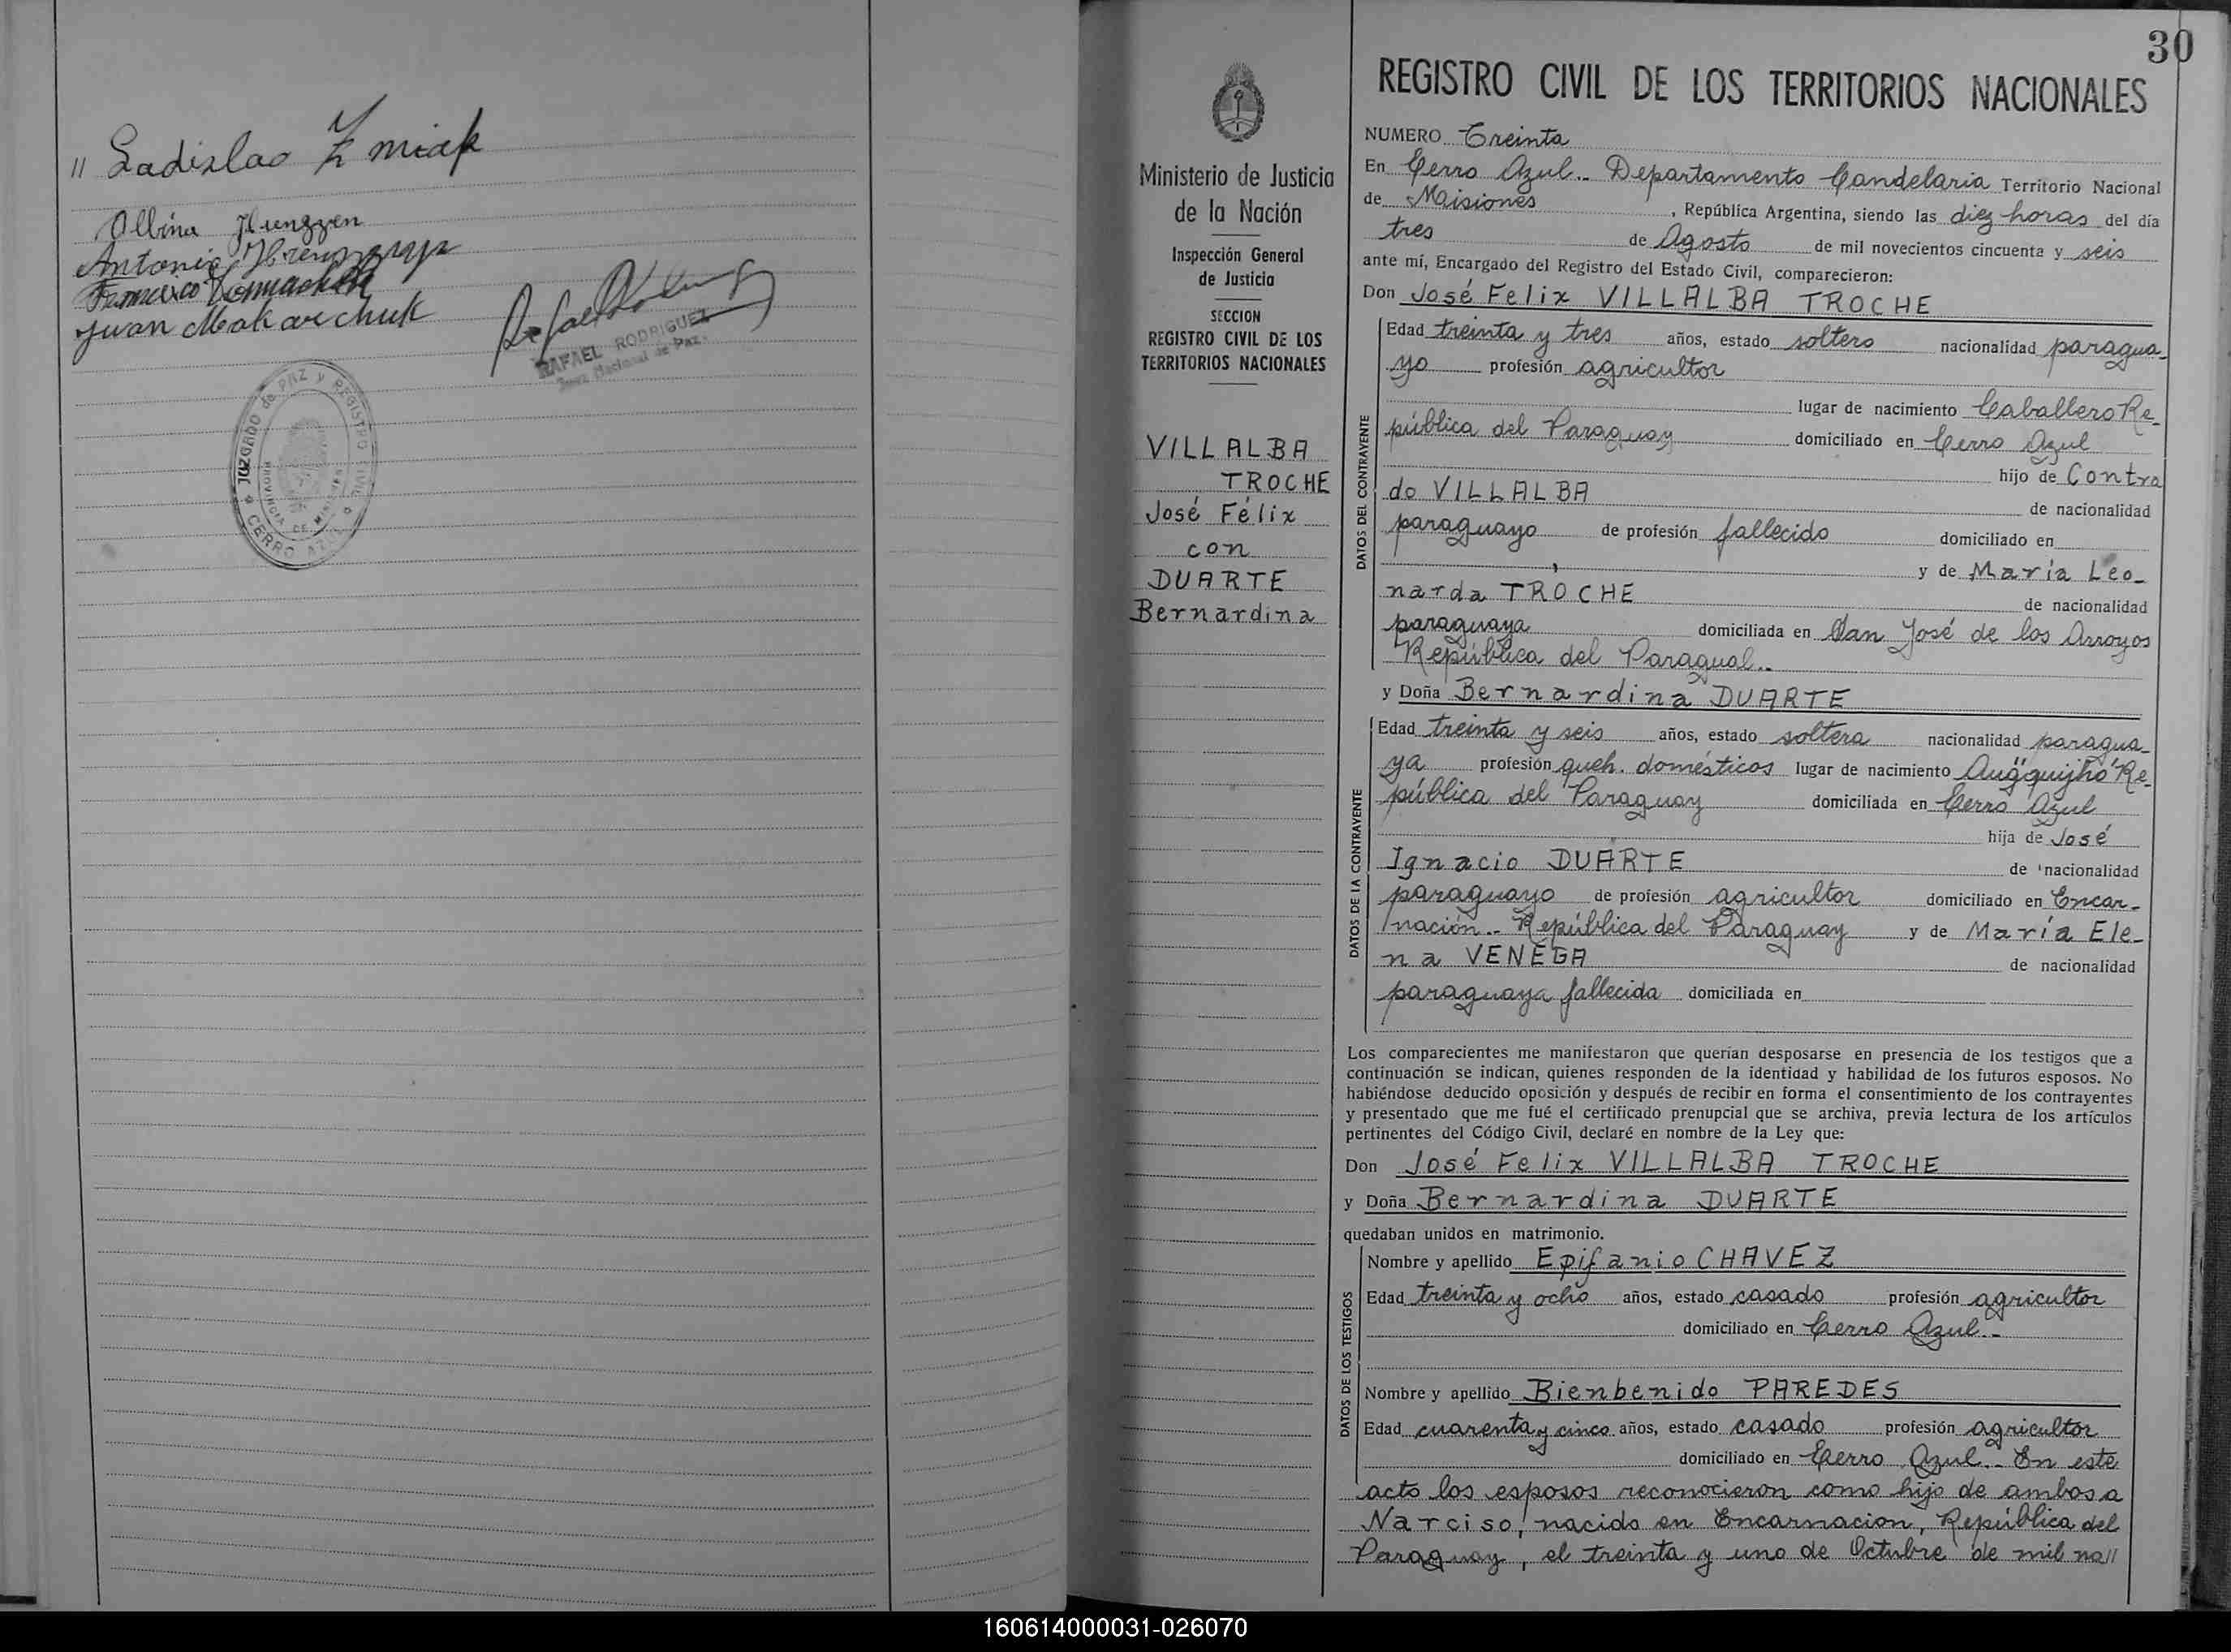 " Ladislao Zmiak
Albina
Antonio
Francisco
Juan Makarchuk
RAFAEL RODRIGUEZ
Juez Nacional de Paz
JUZGADO de PAZ y REGISTRO CIVIL
PROVINCIA DE MISIONES
CERRO AZUL
30
REGISTRO CIVIL DE LOS TERRITORIOS NACIONALES
Ministerio de Justicia
de la Nación
Inspección General
de Justicia
SECCION
REGISTRO CIVIL DE LOS
TERRITORIOS NACIONALES
VILLALBA
TROCHE
José Félix
con
DUARTE
Bernardina
NUMERO Treinta
En Cerro Azul.- Departamento Candelaria Territorio Nacional
de Misiones, República Argentina, siendo las diez horas del día
tres de Agosto de mil novecientos cincuenta y seis
ante mí, Encargado del Registro del Estado Civil, comparecieron:
Don José Felix VILLALBA TROCHE
DATOS DEL CONTRAYENTE
Edad treinta y tres años, estado soltero nacionalidad paragua-
yo profesión agricultor
lugar de nacimiento Caballero Re-
pública del Paraguay domiciliado en Cerro Azul
hijo de Contra
do VILLALBA de nacionalidad
paraguayo de profesión fallecido domiciliado en
y de María Leo-
narda TROCHE de nacionalidad
paraguaya domiciliada en San José de los Arroyos
República del Paragual.-
y Doña Bernardina DUARTE
DATOS DE LA CONTRAYENTE
Edad treinta y seis años, estado soltera nacionalidad paragua-
ya profesión queh. domésticos lugar de nacimiento Re-
pública del Paraguay domiciliada en Cerro Azul
hija de José
Ignacio DUARTE de nacionalidad
paraguayo de profesión agricultor domiciliado en Encar-
nación.- República del Paraguay y de María Ele-
na VENEGA de nacionalidad
paraguaya fallecida domiciliada en
Los comparecientes me manifestaron que querían desposarse en presencia de los testigos que a
continuación se indican, quienes responden de la identidad y habilidad de los futuros esposos. No
habiéndose deducido oposición y después de recibir en forma el consentimiento de los contrayentes
y presentado que me fué el certificado prenupcial que se archiva, previa lectura de los artículos
pertinentes del Código Civil, declaré en nombre de la Ley que:
Don José Felix VILLALBA TROCHE
y Doña Bernardina DUARTE
quedaban unidos en matrimonio.
DATOS DE LOS TESTIGOS
Nombre y apellido Epifanio CHAVEZ
Edad treinta y ocho años, estado casado profesión agricultor
domiciliado en Cerro Azul.-
Nombre y apellido Bienbenido PAREDES
Edad cuarenta y cinco años, estado casado profesión agricultor
domiciliado en Cerro Azul.- En este
acto los esposos reconocieron como hijo de ambos a
Narciso, nacido en Encarnacion, República del
Paraguay, el treinta y uno de Octubre de mil no//
160614000031-026070